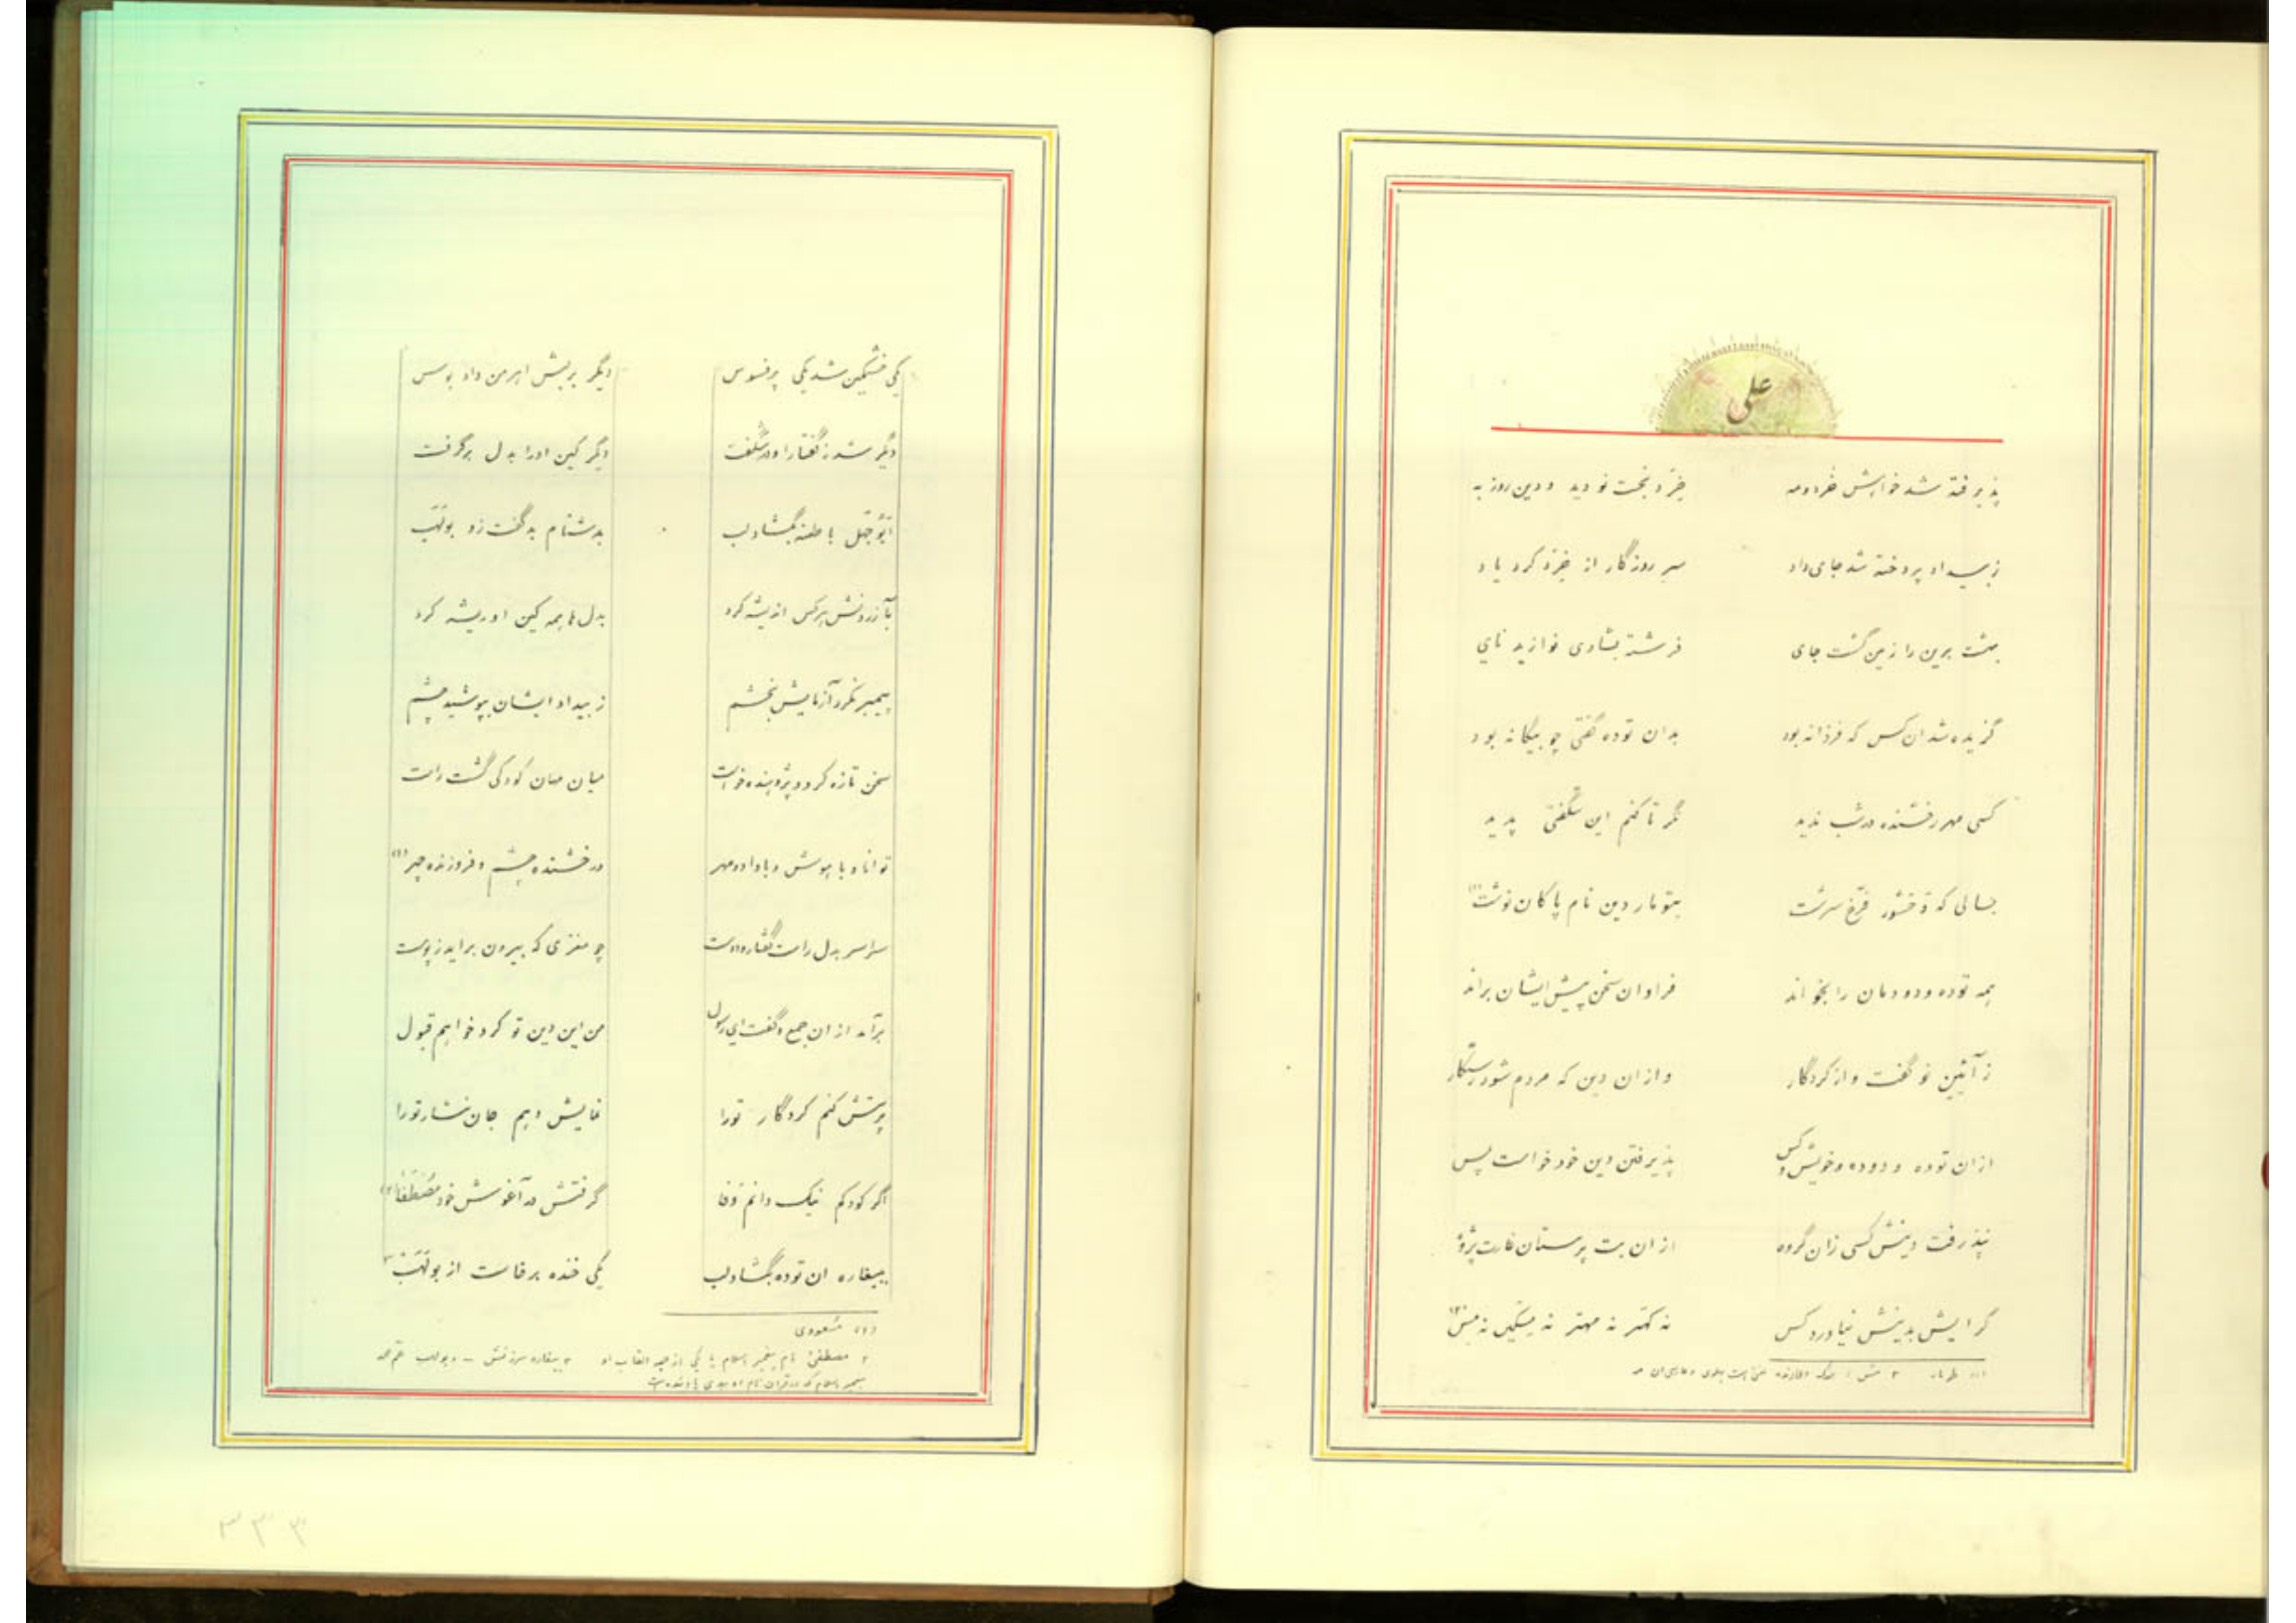 علی
پذیرفته شد خواهش خرد و مه خرد بخت نو دید و دین روز به
ز بیداد پرداخته شد جای داد سر روزگار از خرد کرد یاد
بهشت برین را زمین گشت جای فرشته بشادی نوازید نای
گزیده شد ان کس که فرزانه بود بدان توده گفتی چو بیگانه بود
کسی مهر رخشنده در شب ندید نگر تا کنم این شگفتی پدید
بسالی که وخشور فرخ سرشت بتومار دین نام پاکان نوشت (۱)
همه توده و دودمان را بخواند فراوان سخن پیش ایشان براند
ز آئین نو گفت و از کردگار و ازان دین که مردم شود رستگار
ازان توده و دوده و خویش و کس پذیرفتن دین خود خواست پس
نپذرفت دینش کسی زان گروه ازان بت پرستان غارت پژوه
گرایش بدینش نیاورد کس نه کهتر نه مهتر نه مسکین نه مس (۲)
(۱) طومار ۲ مس : بزرگ
یکی خشمگین شد یکی پر فسوس دیگر بریش اهرمن داد بوس
دگر شد ز گفتار او در شگفت دیگر کین او را بدل برگرفت
ابوجهل با طعنه بگشاد لب بدشنام بد گفت زو بولهب
بآزردنش هر کس اندیشه کرد بدل ها همه کین او ریشه کرد
پیمبر نکرد آزمایش بخشم ز بیداد ایشان بپوشید چشم
سخن تازه کرد و پژوهنده خواست میان مهان کودکی گشت راست
توانا و با هوش و با داد و مهر درخشنده چشم و فروزنده چهر (۱)
سراسر بدل راست گفتار و دوست چو مغزی که بیرون براید ز پوست
برآمد ازان جمع و گفت ای رسول من این دین تو کرد خواهم قبول
پرستش کنم کردگار تورا نمایش دهم جان نثار تورا
اگر کودکم نیک دانم وفا گرفتش در آغوش خود مصطفا (۲)
بیغاره ان توده بگشاد لب یکی خنده برخاست از بولهب ۳
(۱) مسعودی
۲ مصطفی نام پیغمبر اسلام یا یکی از القاب او ۳ بیغاره سرزنش - و بولهب عم
پیغمبر اسلام که در قران نام او ببدی یاد شده است
۳۳۳